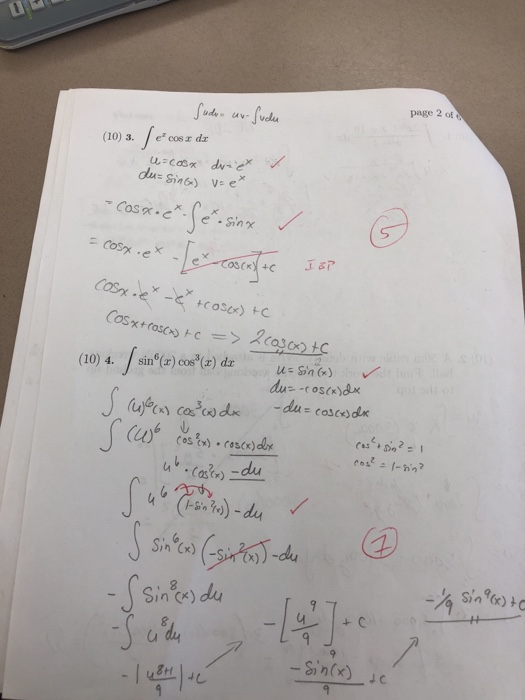 ∫udv = uv - ∫vdu
page 2 of 6
(10) 3. ∫ e^x cos x dx
u = cosx dv = e^x ✓
du = sin(x) v = e^x
= cosx · e^x - ∫e^x · sinx ✓
5
= cosx · e^x - [e^x - cos(x)] + c IBP
cosx · e^x - e^x + cos(x) + c
cosx + cos(x) + c => 2cos(x) + c
(10) 4. ∫ sin^6(x) cos^3(x) dx
u = sin(x) ✓
du = -cos(x)dx
-du = cos(x)dx
∫ (u)^6(x) cos^3(x) dx
∫ (u)^6 cos^2(x) · cos(x) dx
cos^2 + sin^2 = 1
cos^2 = 1 - sin^2
u^6 · cos^2(x) - du
∫ u^6 (1 - sin^2(x)) - du ✓
7
∫ sin^6(x) (-sin^2(x)) - du
- ∫ sin^8(x) du
- ∫ u^8 du
- | u^8+1 / 9 | + c
- [ u^9 / 9 ] + c
- sin^9(x) / 9 + c
- 1/9 sin^9(x) + c